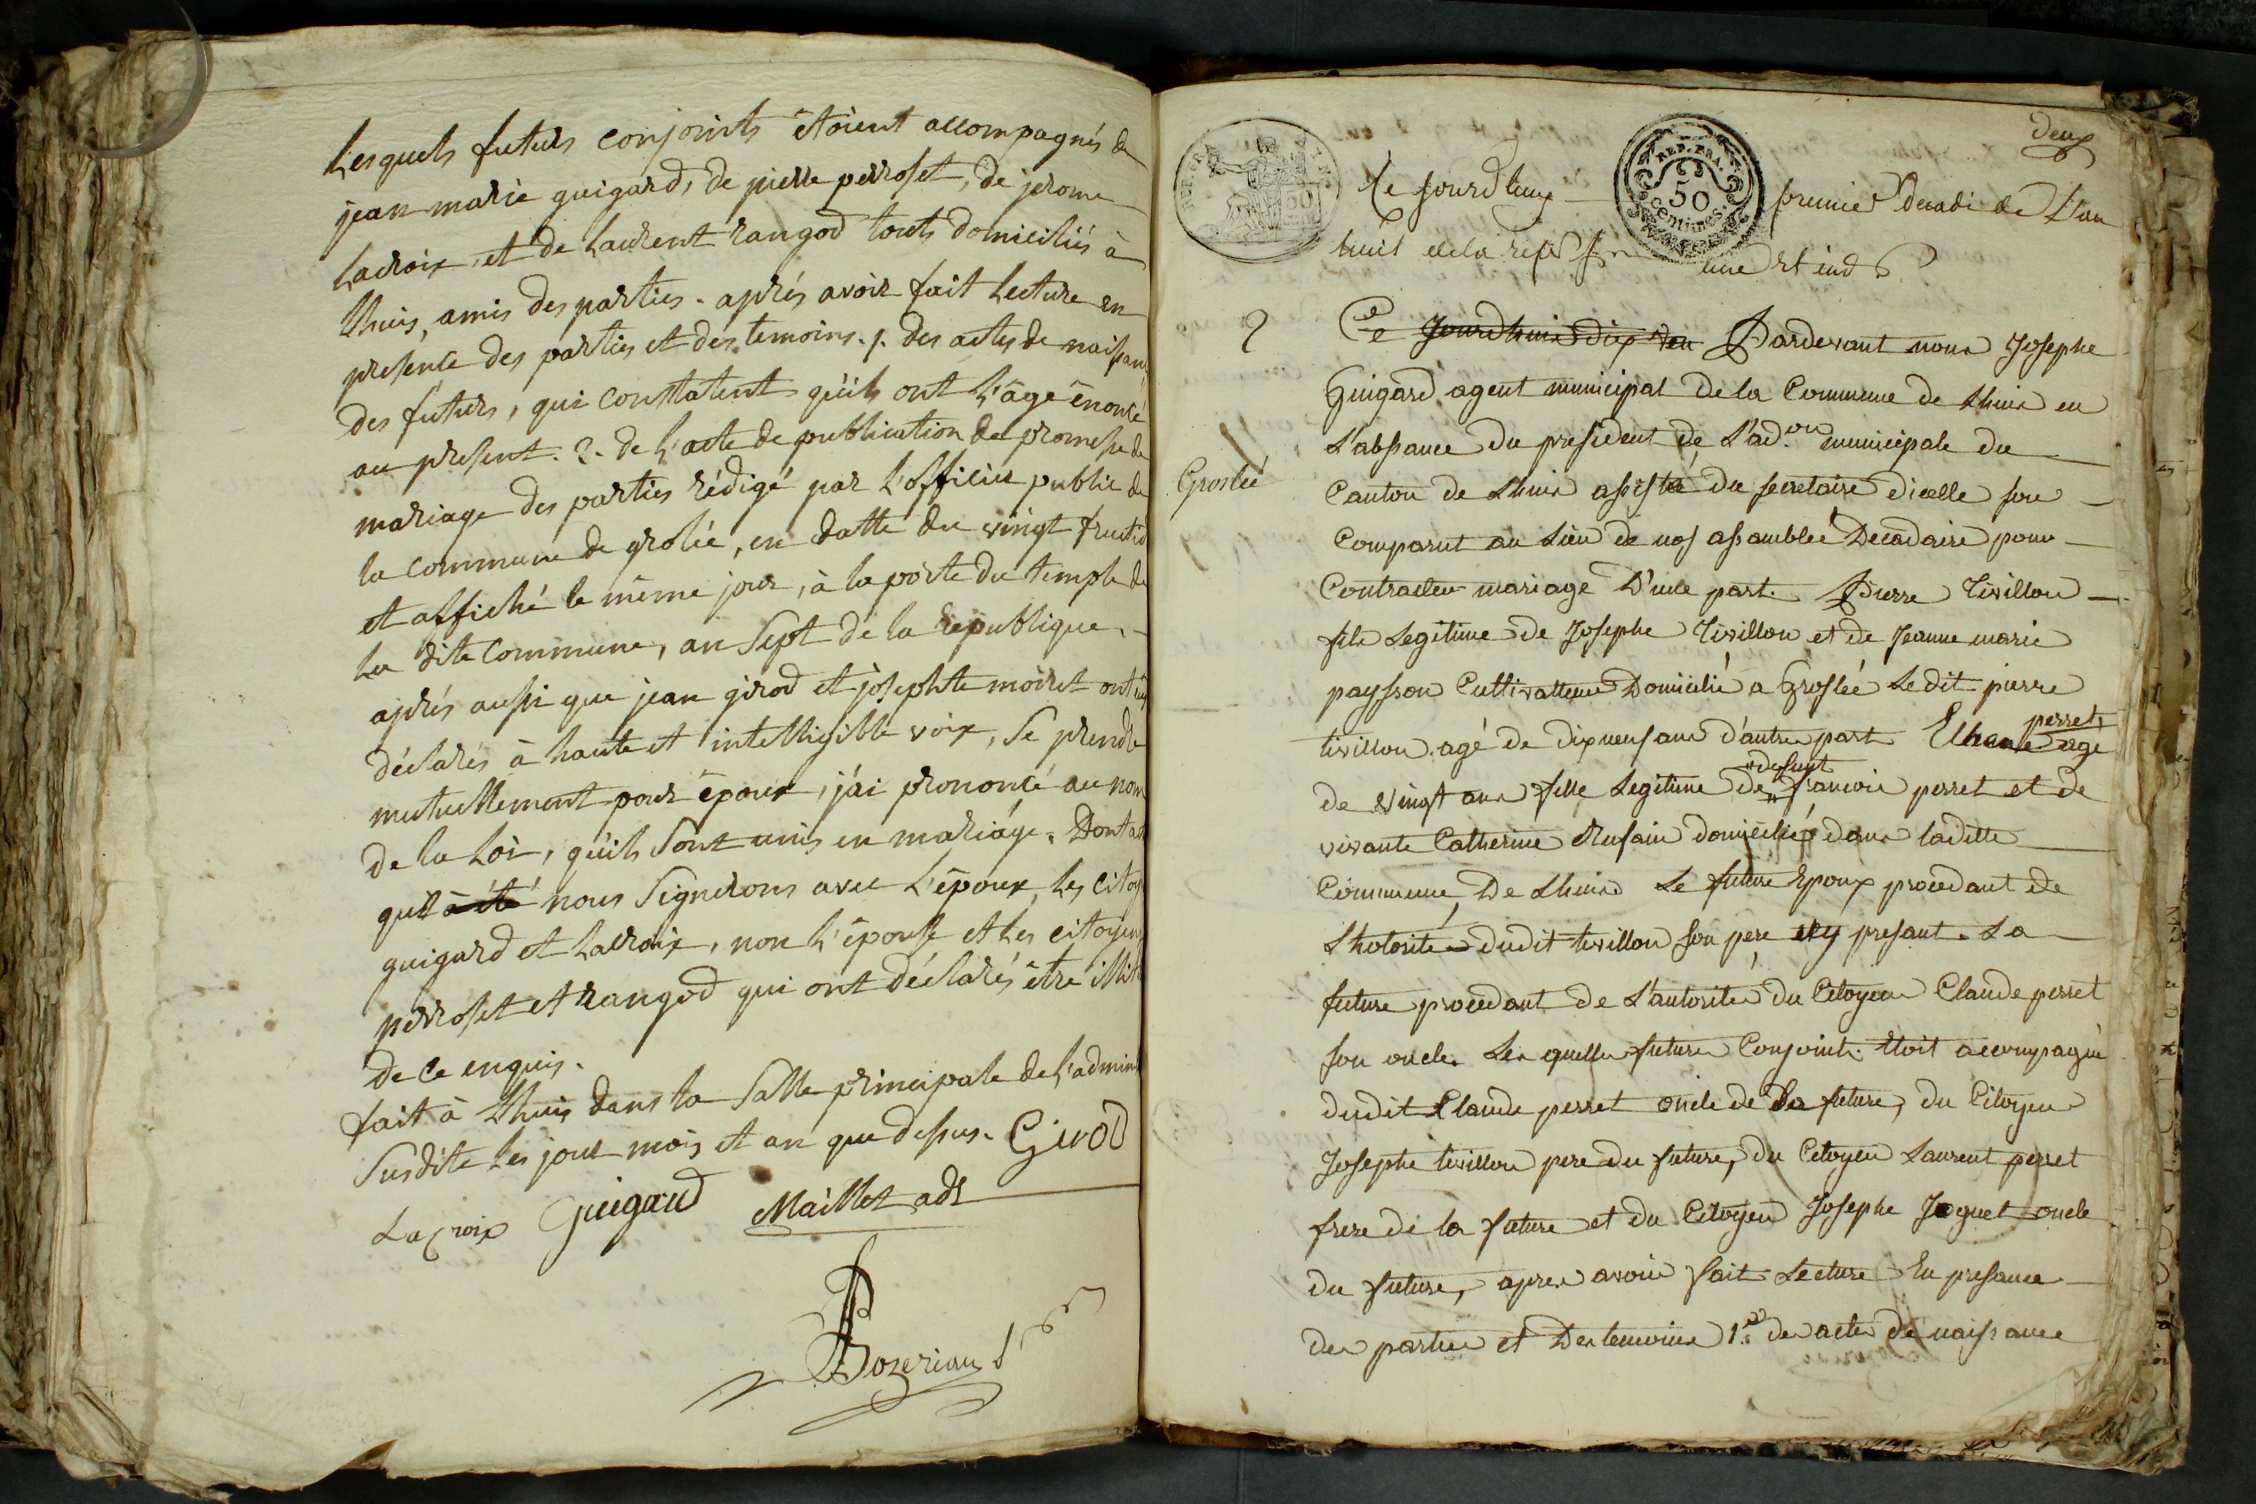 Lesquels futurs conjoints étoient accompagnés de
jean marie guigard, de pierre perroset, de jerome
Lacroix, et de Laurent rangod touts domiciliés à
Lhuis, amis des parties. aprés avoir fait Lecture en
presence des parties et des temoins. 1. des actes de naissan
des futurs, qui constatent qu'ils ont L'âge énoncé
au present. 2. de L'acte de publication de promesse de
mariage des parties rédigé par L'officier public de
la commune de grolée, en datte du vingt fructid
et affiché le même jour, à la porte du temple de
La dite commune, an Sept de la République.
aprés aussi que jean girod et josephte moiret ont
déclarés à haute et intelligible voix, Se prendre
mutuellement pour époux, j'ai prononcé au nom
de la Loi, qu'ils Sont unis en mariage. Dont acte
que a été nous Signerons avec L'époux, les citoy
guigard et Lacroix, non L'épouse et Les citoyens
perroset et rangod qui ont déclarés être illit
de ce enquis.
fait à Lhuis dans la Salle principale de L'admin
Susdite Les jour mois et an que dessus. Girod
Lacroix Guigard Maillet adt
Bozerian S
deux
REP. FRA.
50
centimes.
Ce jourdhuy premier Decadi de L'an
huit de la rep. fr une et ind
2
Ce Jourdhuis dix Pardevant nous Josephe
Guigard agent municipal de la Commune de Lhuis en
L'absance du president de L'ad.on municipale du
Groslée
Canton de Lhuis assisté du secretaire dicelle son
Comparut au Lieu de nos assamblée Decadaire pour
Contracter mariage D'une part. Pierre Tivillon
fils Legitime de Josephe Tivillon et de Jeanne marie
paysson Cultivatteur Domicilié a Groslée Ledit pierre
tivillon agé de dixneuf ans d'autre part perret agé
de vingt ans fille Legitime de defunt francois perret et de
vivante Catherine Rusain domiciliée dans laditte
Commune De Lhuis Le future Epoux procedant de
Lhotorité dudit tivillon son pere icy present. La
future procedant de L'autorité du Citoyen Claude perret
son oncle. Les quelles future Conjoints. Etoit accompagné
dudit Claude perret oncle de La future, du Citoyen
Josephe tivillon pere du future, du Citoyen Laurent perret
frere de la future et du Citoyen Josephe Joguet oncle
du future, apres avoir fait Lecture En presance
des parties et Des temoins 1.o des actes de naissance